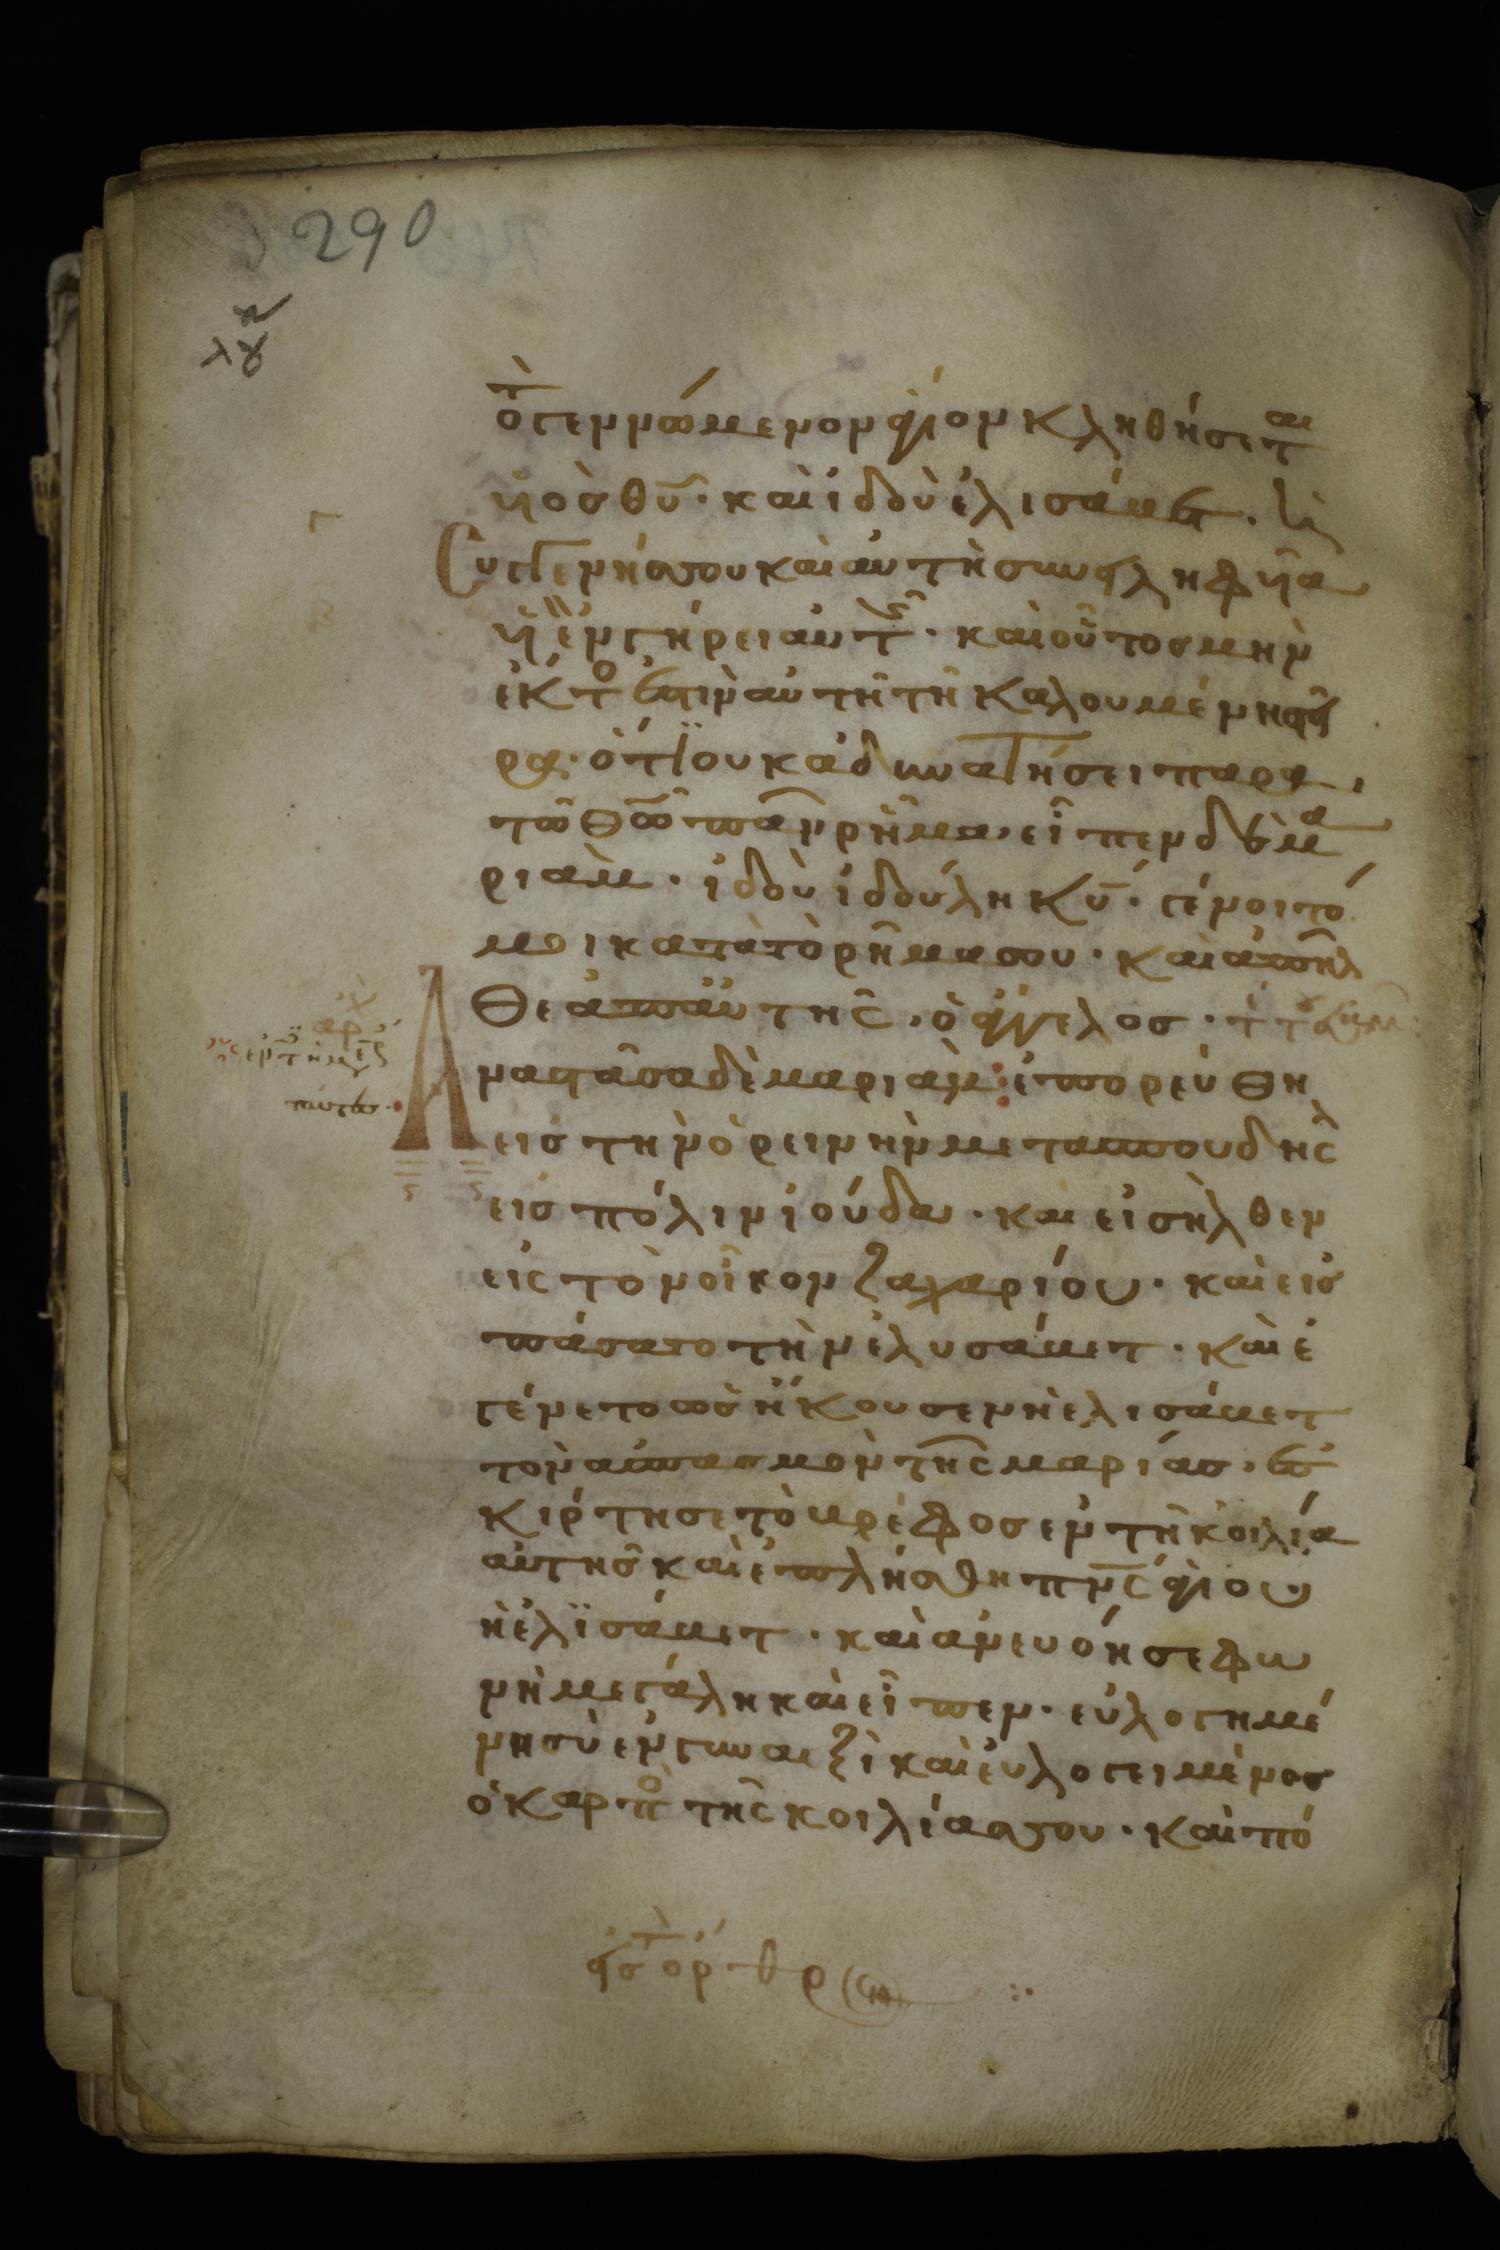 290
λγ
τὸ γεννώμενον ἅγιον κληθήσεται
ὑὸσ θῦ· καὶ ἰδοὺ ἐλισάβετ· ἡ
Συγγενήσ σου καὶ αὐτὴ συνειληφυῖα
ὑὸν ἐν γήρει αὐτῆς· καὶ οὗτοσ μὴν
ἕκτος ἐστὶν αὐτῆ τῆ καλουμένη στεί
ρα· ὅτι οὐκ ἀδυνατήσει παρὰ
τῶ θῶ πᾶν ρῆμα· εἶπεν δὲ μα
ριὰμ· ἰδοὺ ἡ δούλη κυ· γένοιτό
μοι κατὰ τὸ ρῆμα σου· καὶ ἀπῆλ
θε ἀπ' αὐτῆς, ὁ ἄγγελοσ·
Αναστᾶσα δὲ μαριὰμ ἐπορεύθη
εισ τὴν ὀρεινὴν μετα σπουδῆς
εισ πόλιν ἰούδα· και εἰσῆλθεν
εἰς τὸν οἶκον ζαχαρίου· καὶ εισ
πάσατο τὴν ἐλυσάβετ· καὶ ἐ
γένετο ωσ ἤκουσεν ἡ ελισάβετ
τὸν ἀσπασμὸν τῆς μαρίασ· ἐσ
κίρτησε τὸ βρέφοσ ἐν τῆ κοιλία
αὐτῆσ καὶ ἐπλήσθη πνς ἁγίου
ἡ ἐλϊσάβετ· καὶ ἀνευόησε φω
νὴ μεγάλη καὶ εἶπεν· εὐλογημέ
νη σὺ ἐν γυναιξὶ καὶ ἐυλογειμένοσ
ὁ καρπὸς τῆς κοιλίασ σου· καὶ πό